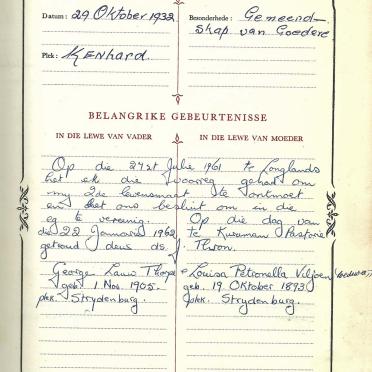 Datum: 29 Oktober 1932. Besonderhede: Gemeend-
skap van Goedere
Plek: Kenhard.
BELANGRIKE GEBEURTENISSE
IN DIE LEWE VAN VADER IN DIE LEWE VAN MOEDER
Op die 27ste Julie 1961 te Longlands
het ek die voorreg gehad om
my 2de lewensmaat te ontmoet
en het ons besluit om in die
eg te verenig. Op die dag van
die 22 Januarie 1962, te Kuruman Pastorie
getroud deur ds. J. Theron.
George Lauw Thorpe & Louisa Petronella Viljoen (weduwee)
geb. 1 Nov. 1905. geb. 19 Oktober 1893
plek. Strydenburg. plek. Strydenburg.